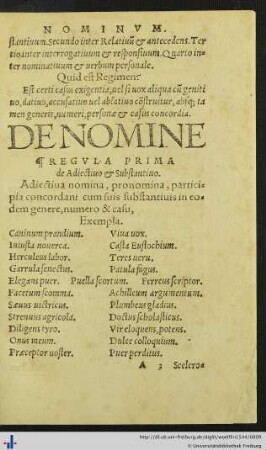 NOMINVM.
stantiuum. Secundo inter Relatiuũ & antecedens. Ter
tio inter interrogatiuum & responsiuum. Quarto in-
ter nominatiuum & uerbum personale.
Quid est Regimen?
Est certi casus exigentia, uel si uox aliqua cũ geniti
uo, datiuo, accusatiuo uel ablatiuo cõstruitur, absq; ta
men generis, numeri, personæ & casus concordia.
DE NOMINE
¶ REGVLA PRIMA
de Adiectiuo & Substantiuo.
Adiectiua nomina, pronomina, partici-
pia concordant cum suis substantiuis in eo-
dem genere, numero & casu,
Exempla.
Caninum prandium. Viua uox.
Iniusta nouerca. Casta Eustochium.
Herculeus labor. Teres ueru.
Garrula senectus. Patula fagus.
Elegans puer. Puella scortum. Ferreus scriptor.
Facetum scomma. Achilleum argumentum.
Sæuus uictricus. Plumbeus gladius.
Strenuus agricola. Doctus scholasticus.
Diligens tyro. Vir eloquens, potens.
Onus meum. Dulce colloquium.
Præceptor uoster. Puer perditus.
A 3 Scelero-
© Universitätsbibliothek Freiburg